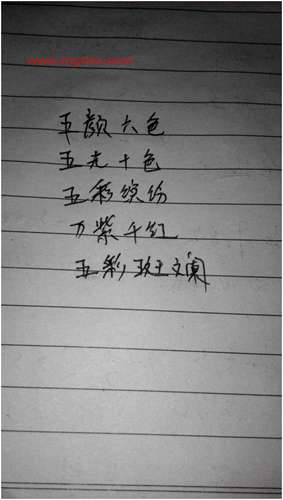 五颜六色
五光十色
五彩缤纷
万紫千红
五彩班斓